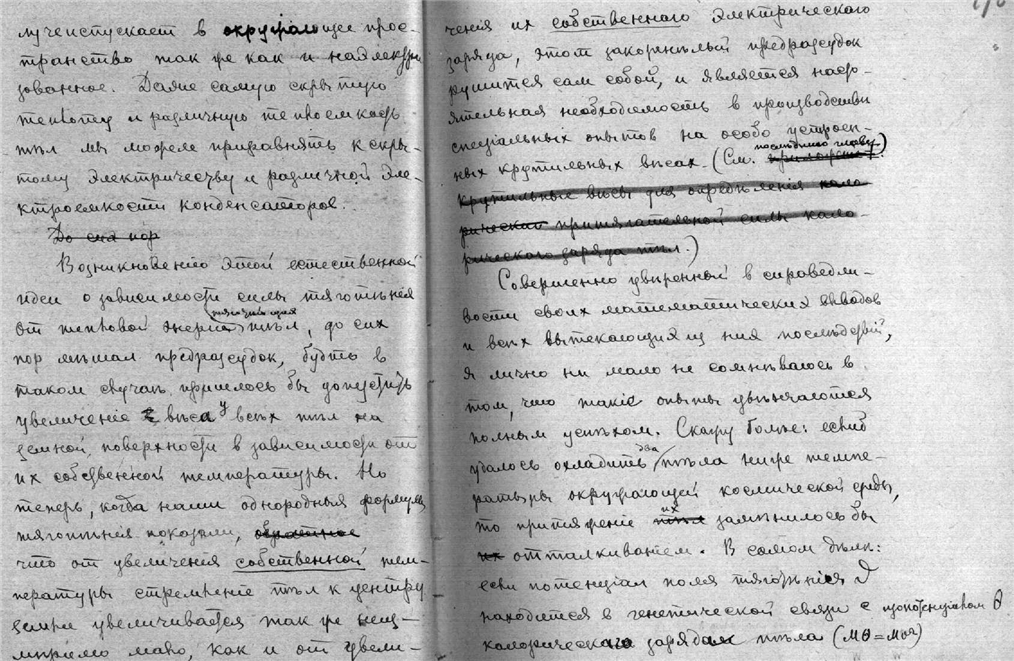 лучеиспускает в окружающее прос-
транство так же как и наэлектри
зованное. Далее самую скрытую
теплоту и различную теплоемкость
тѣл мы можем приравнять к скры-
тому электричеству и различной эле-
ктроемкости конденсаторов.
До сих пор
Возникновению этой естественной
идеи о зависимости силы тяготѣния
от тепловой энергии тѣл, до сих
пор мѣшал предразсудок, будто в
таком случаѣ пришлось бы допустить
увеличение вѣса у всѣх тѣл на
земной поверхности в зависимости от
их собственной температуры. Но
теперь, когда наши однородныя формулы
тяготѣния показали, обратное
что от увеличения собственной тем-
пературы стремление тѣл к центру
земли увеличивается так же неиз-
мѣримо мало, как и от увели-
чения их собственнаго электрического
заряда, этот закоренѣлый предразсудок
рушится сам собой, и является насто-
ятельная необходимость в производствѣ
спецiальных опытов на особо устроен-
последнюю главу
ных крутильных вѣсах. (См. приложение).
крутильные вѣсы для опредѣления кало
рической притягательной силы кало-
рического заряда тѣл.)
Совершенно увѣренной в справедли-
вости своих математических выводов
и всѣх вытекающих из них послѣдствий,
я лично ни мало не сомнѣваюсь в
том, что такие опыты увѣнчаются
полным успѣхом. Скажу больше: еслиб
удалось охладить два тѣла ниже темпе-
ратуры окружающей космической среды,
то притяжение их замѣнилось бы
их отталкиванием. В самом дѣлѣ:
если потенцiал поля тяготѣния
находится в генетической связи с изопотенцiалом θ
калорического заряда тѣла